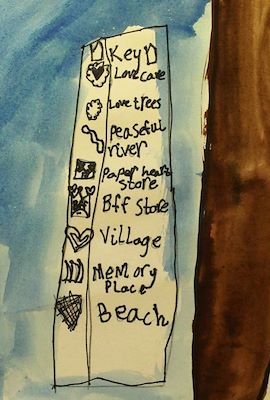 Key
Love cave
Love trees
Peaseful
river
Paper heart
Store
Bff Store
Village
Memory
Place
Beach